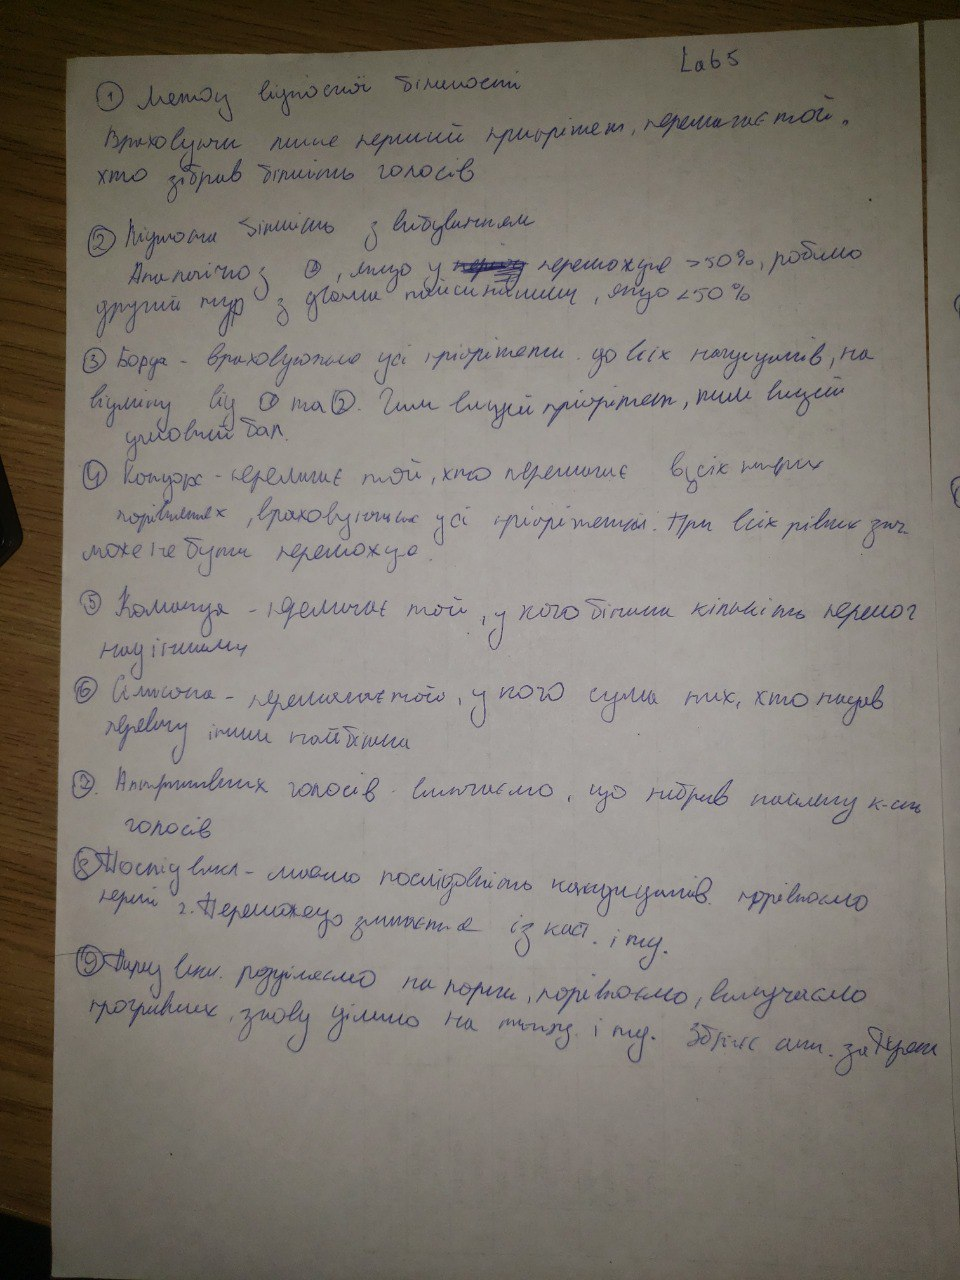 Lab 5
① Метод відносної більшості
Враховуючи лише перший пріорітет, перемагає той,
хто зібрав більшість голосів
② Відносна більшість з вибуванням
Аналогічно з ①, якщо у переможця >50%, робимо
другий тур з двома найсильнішими, якщо <50%
③ Борда - враховуються усі пріорітети до всіх кандидатів, на
відміну від ① та ②. Чим вищий пріорітет, тим вищий
умовний бал.
④ Кондорсе - перемагає той, хто перемагає в усіх інших
порівняннях, враховуючи усі пріорітети. При всіх рівних знач.
може не бути переможця.
⑤ Копеланда - перемагає той, у кого більша кількість перемог
над іншими
⑥ Сімпсона - перемагає той, у кого сума тих, хто надав
перевагу іншим найбільша
⑦ Альтернативних голосів - вилучаємо, що набрав найменшу к-сть
голосів
⑧ Послід викл - маємо послідовність кандидатів. порівнюємо
перші 2. Переможець змагається із наст. і тд.
⑨ Парал викл. розділяємо на пари, порівнюємо, вилучаємо
програвших, знову ділимо на і тд. за